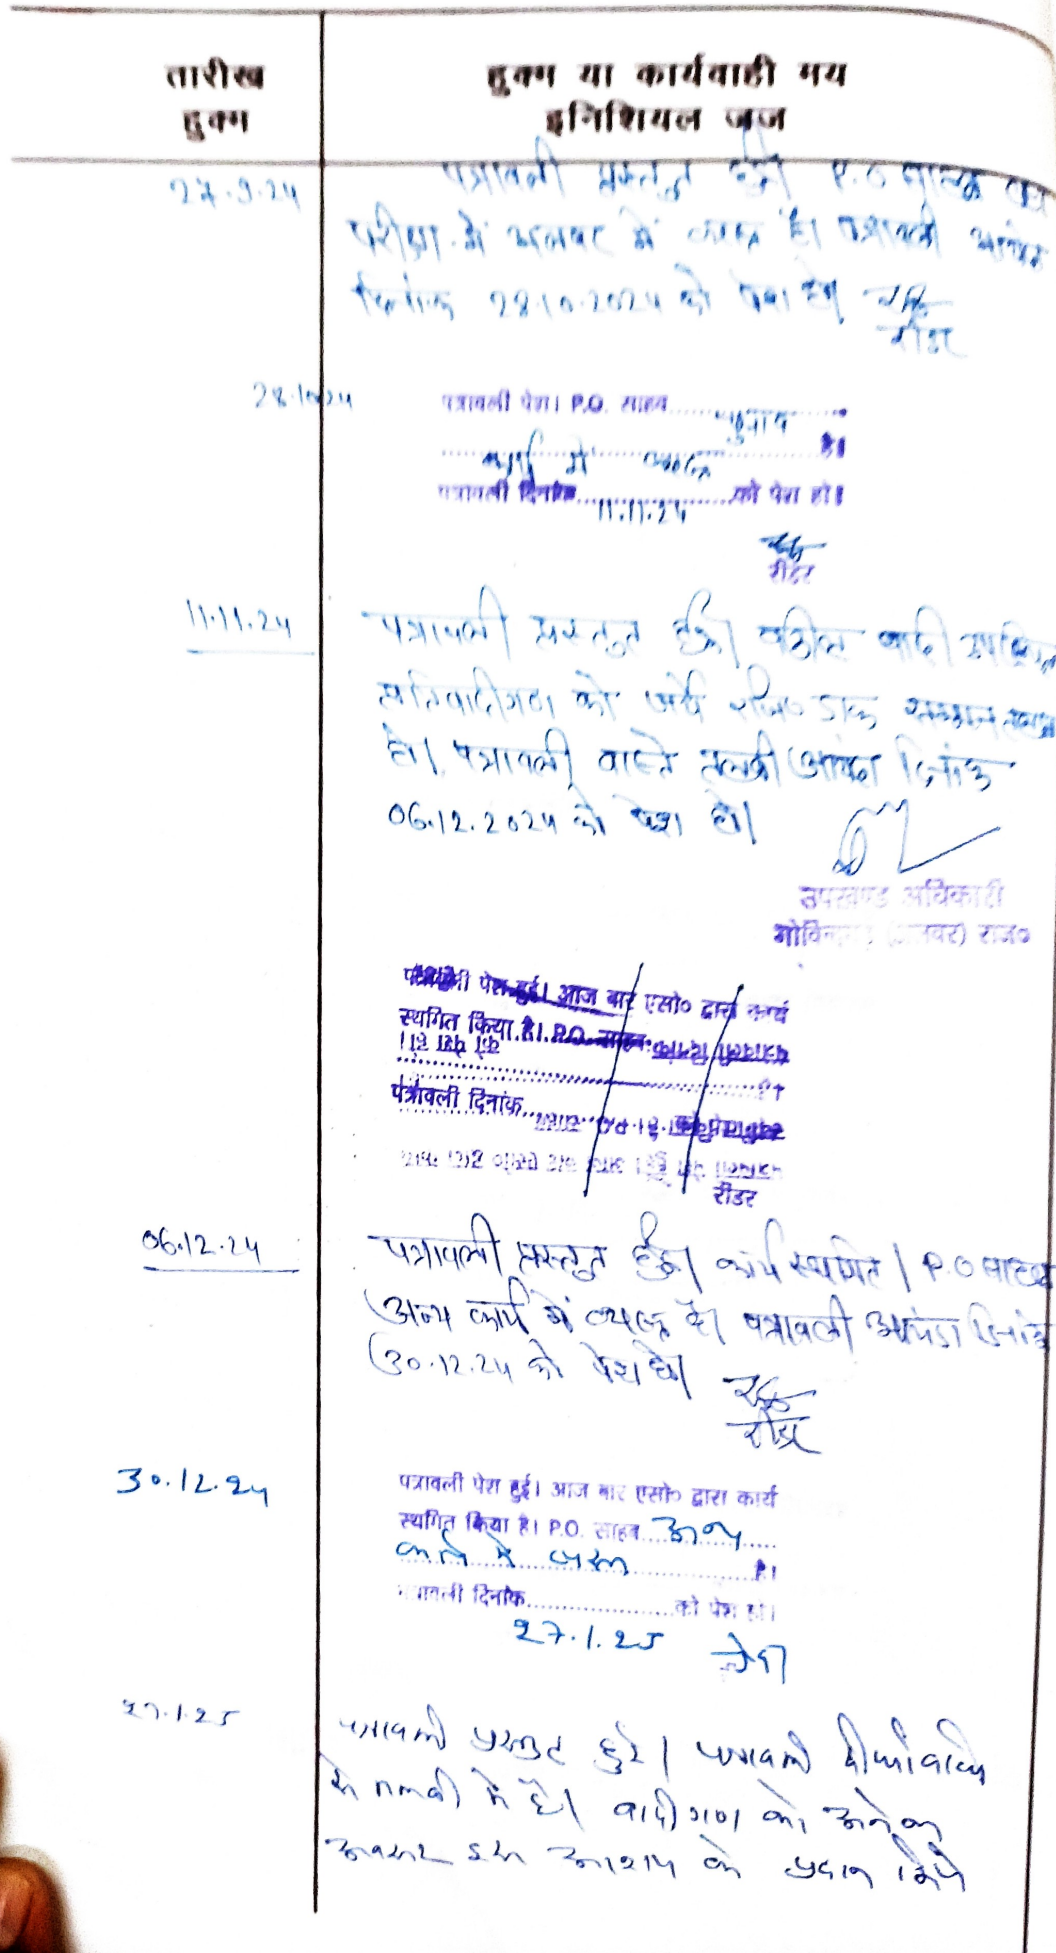 तारीख
हुक्म
हुक्म या कार्यवाही मय
इनिशियल जज
27.9.24
पत्रावली प्रस्तुत हुई। P.O साहब
परीक्षा में अलवर में व्यस्त है। पत्रावली
दिनांक 28.10.2024 को पेश हो।
रीडर
28.10.24
पत्रावली पेश। P.O. साहब चुनाव
कार्य में व्यस्त है।
पत्रावली दिनांक 11.11.24 को पेश हो।
रीडर
11.11.24
पत्रावली प्रस्तुत हुई। वकील वादी उपस्थित
प्रतिवादीगण को जर्ये रजि० डाक
हो। पत्रावली वास्ते तलबी आयंदा दिनांक
06.12.2024 को पेश हो।
उपखण्ड अधिकारी
गोविन्दगढ़ (अलवर) राज०
पत्रावली पेश हुई। आज बार एसो० द्वारा कार्य
स्थगित किया है। P.O. साहब
पत्रावली दिनांक
रीडर
06.12.24
पत्रावली प्रस्तुत हुई। कार्य स्थगित। P.O साहब
अन्य कार्य में व्यस्त है। पत्रावली आयंदा दिनांक
30.12.24 को पेश हो।
रीडर
30.12.24
पत्रावली पेश हुई। आज बार एसो० द्वारा कार्य
स्थगित किया है। P.O. साहब अन्य
कार्य में व्यस्त है।
पत्रावली दिनांक को पेश हो।
27.1.25
27.1.25
पत्रावली प्रस्तुत हुई। पत्रावली
से तलबी में है। वादीगण को अनेक
अवसर इस आशय के प्रदान किये